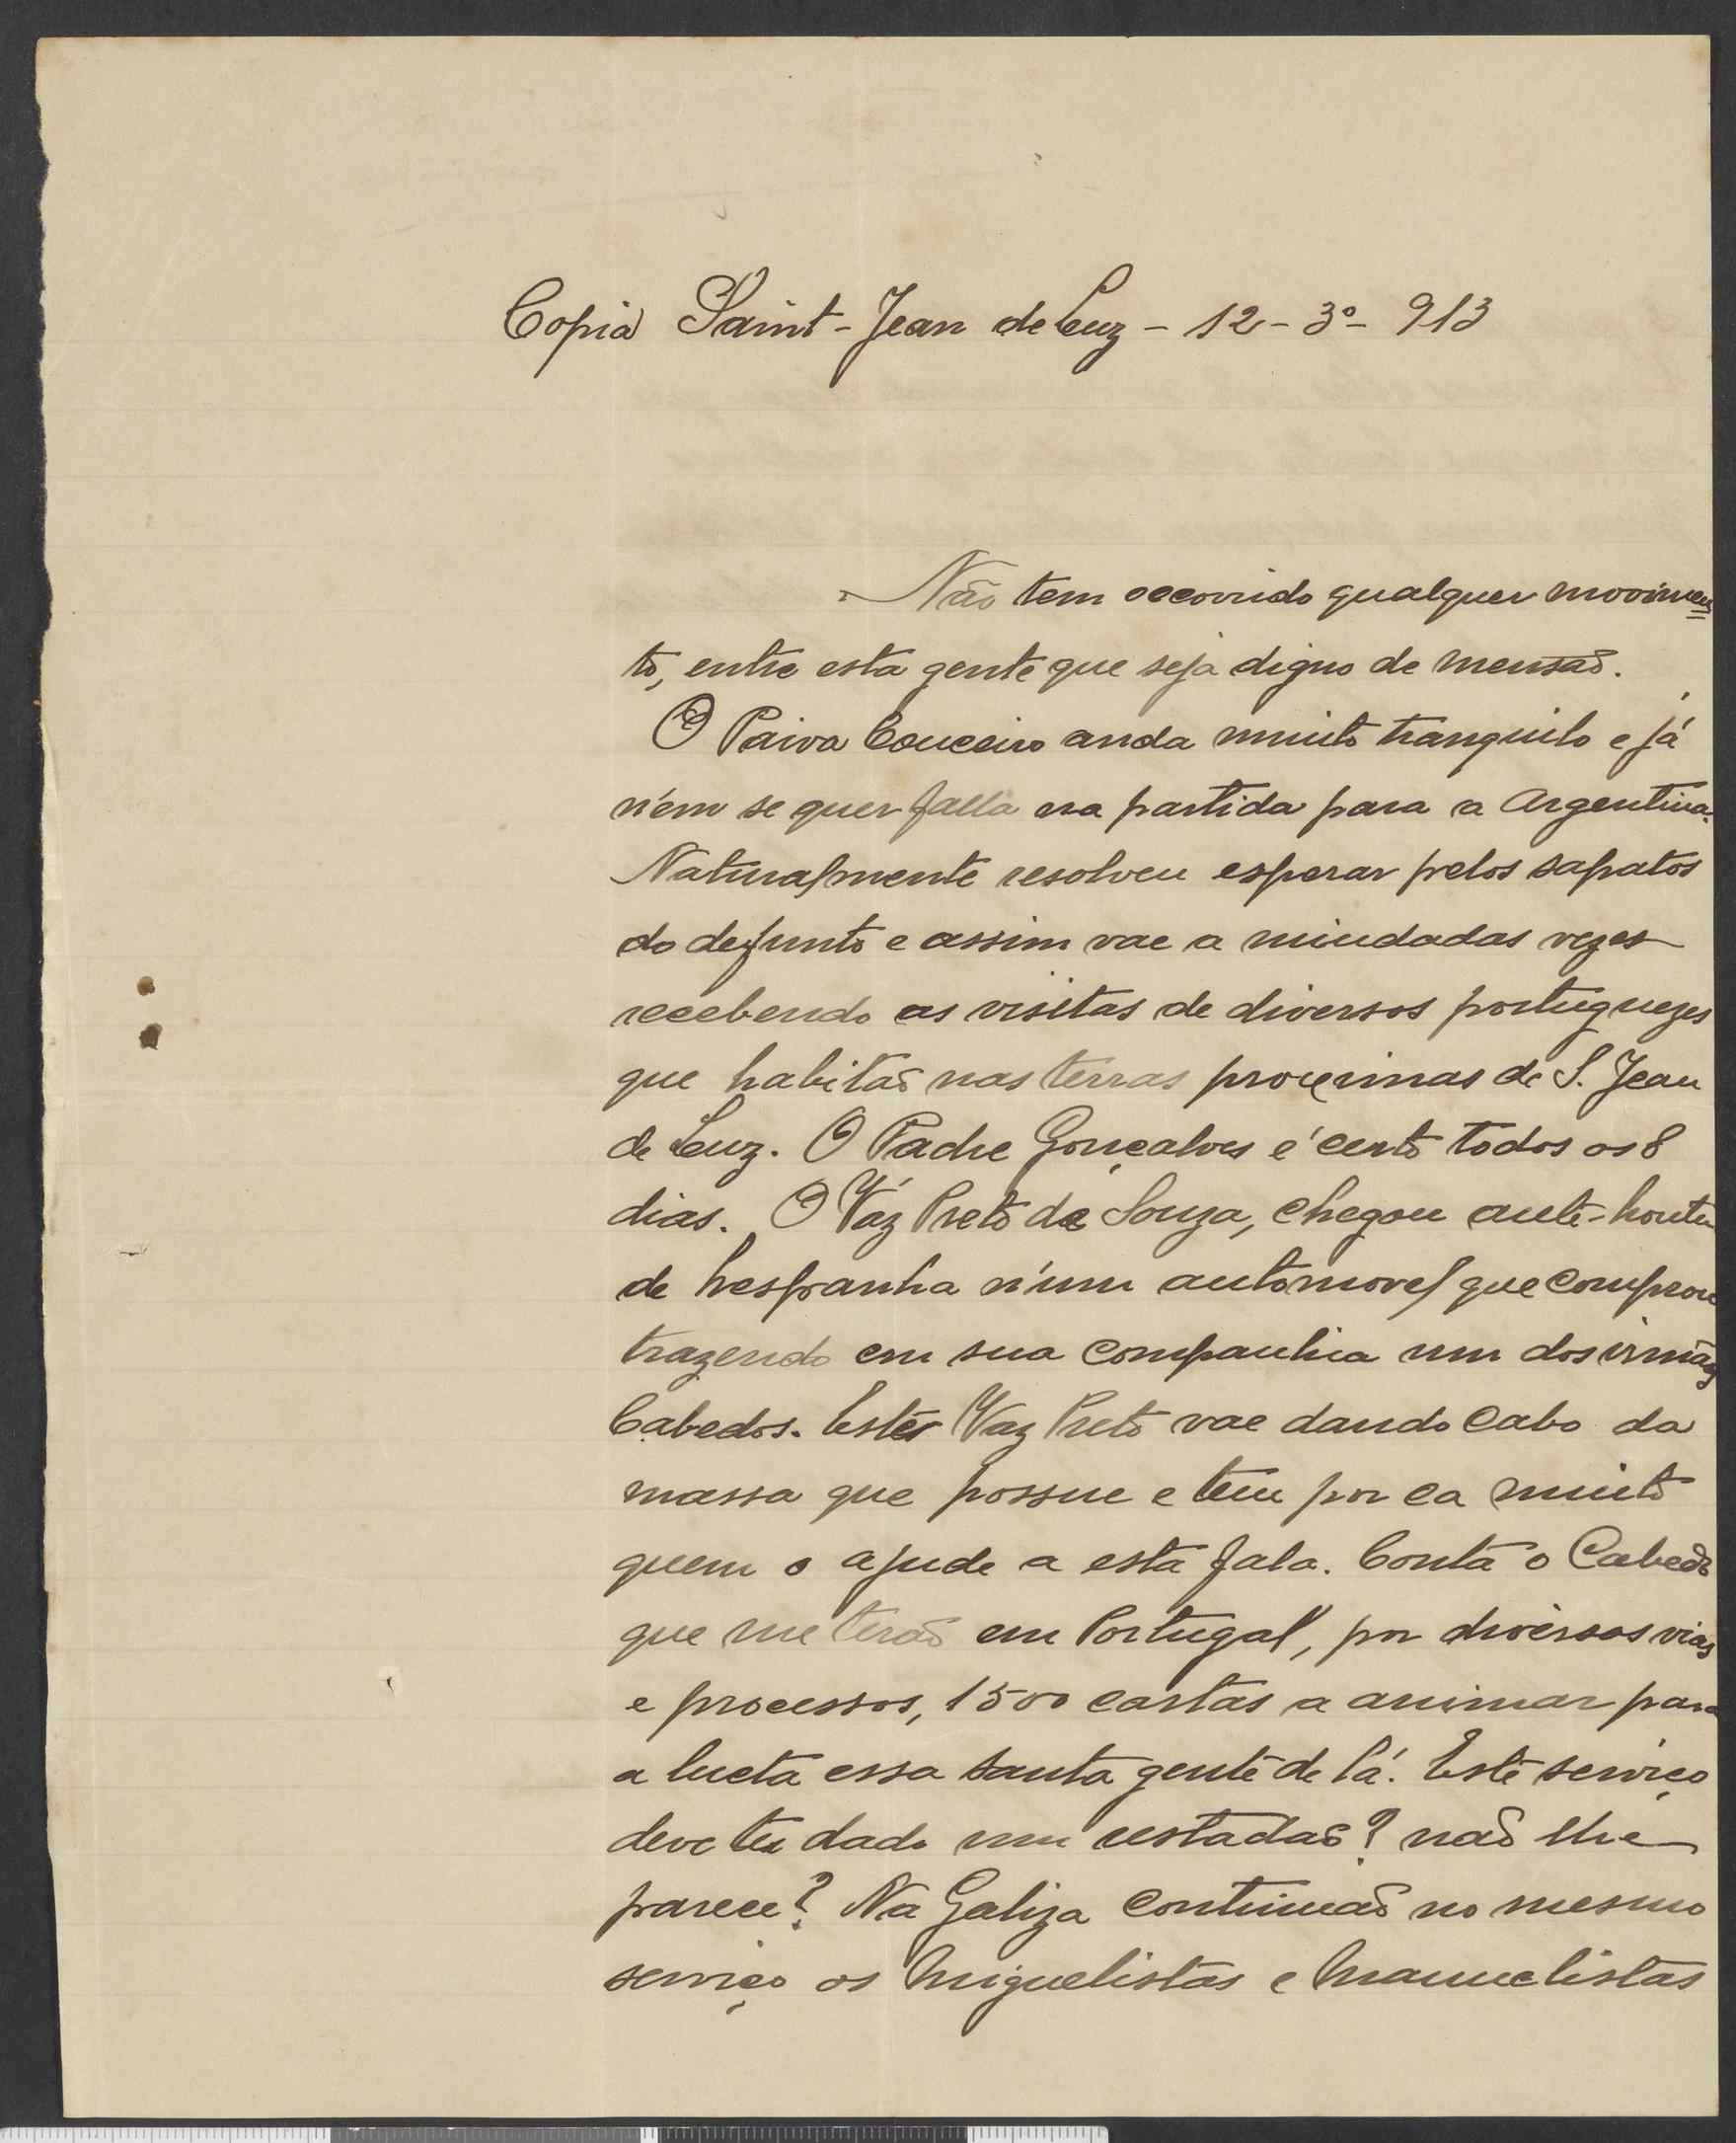 Copia Saint-Jean de Luz - 12-3º- 913
Não tem occorrido qualquer movimen
to, entre esta gente que seja digno de mensaõ.
O Paiva Couceiro anda muito tranquilo e já
n'em se quer falla na partida para a Argentina.
Naturalmente resolveu esperar pelos sapatos
do defunto e assim vae a miudadas vezes
recebendo as visitas de diversos portuguezes
que habitaõ nas terras proximas de S. Jean
de Luz. O Padre Gonçalves é certo todos os 8
dias. O Váz Preto de Souza, chegou ante-hontem
de hespanha n'um automovel que comprou
trazendo em sua companhia um dos irmãos
Cabedos. Este Vaz Preto vae dando cabo da
massa que possue e tem por ca muito
quem o ajude a esta fala. Conta o Cabedo
que meteraõ em Portugal, por diversas vias
e processos, 1500 cartas a animar para
a lucta essa santa gente de lá. Este serviço
deve ter dado um restadaõ? naõ lhe
parece? Na Galiza continuaõ no mesmo
serviço os Miguelistas e Manuelistas